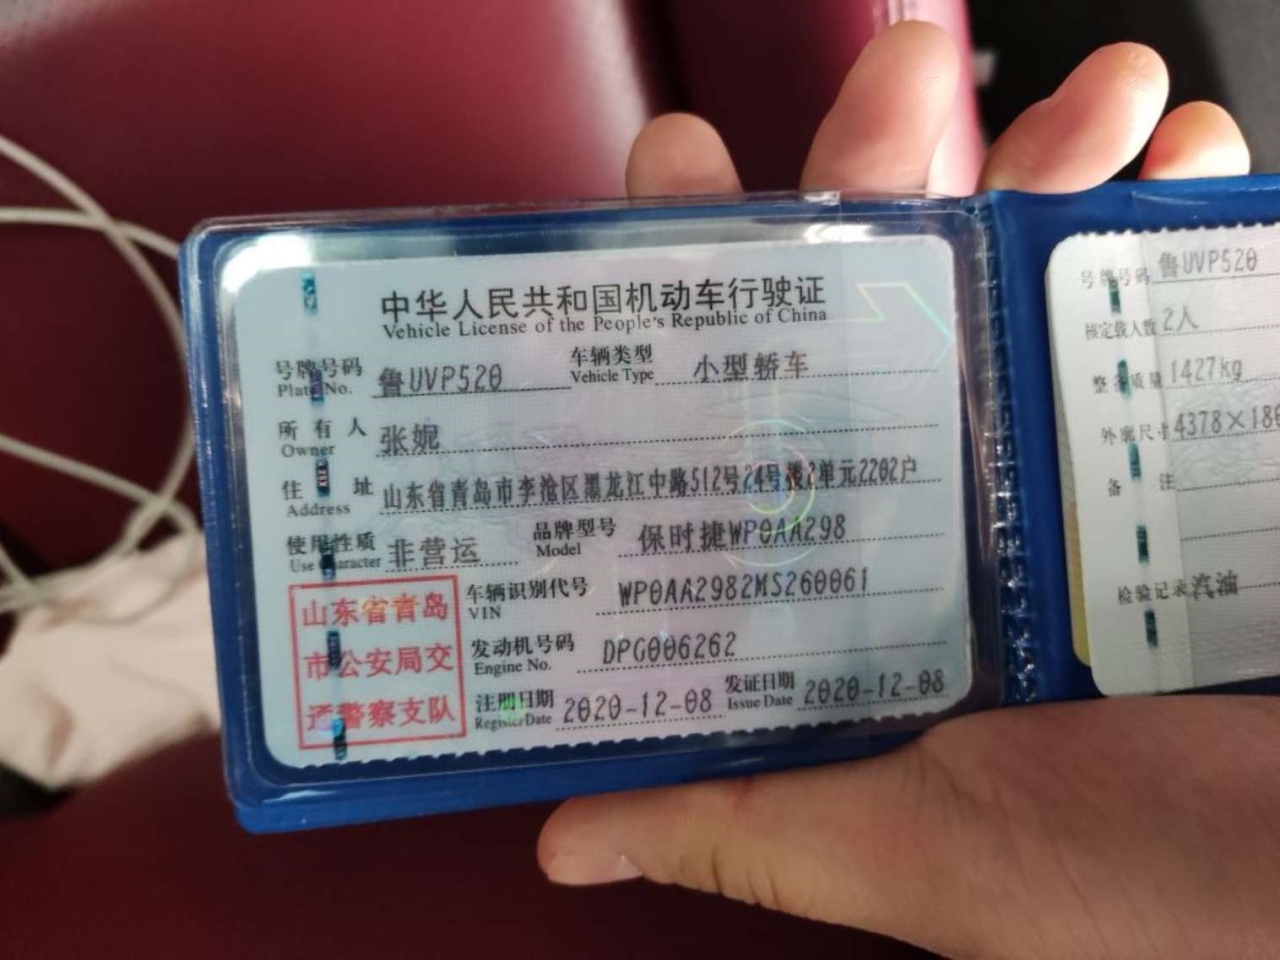 中华人民共和国机动车行驶证
Vehicle License of the People's Republic of China
号牌号码 鲁UVP520 车辆类型 小型轿车
Plate No. Vehicle Type
所有人 张妮
Owner
住址 山东省青岛市李沧区黑龙江中路512号24号楼2单元2202户
Address
使用性质 非营运 品牌型号 保时捷WP0AA298
Use Character Model
车辆识别代号 WP0AA2982MS260061
VIN
发动机号码 DPG006262
Engine No.
注册日期 2020-12-08 发证日期 2020-12-08
Register Date Issue Date
山东省青岛
市公安局交
通警察支队
号牌号码 鲁UVP520
核定载人数 2人
整备质量 1427kg
外廓尺寸 4378×18
备注
检验记录 汽油